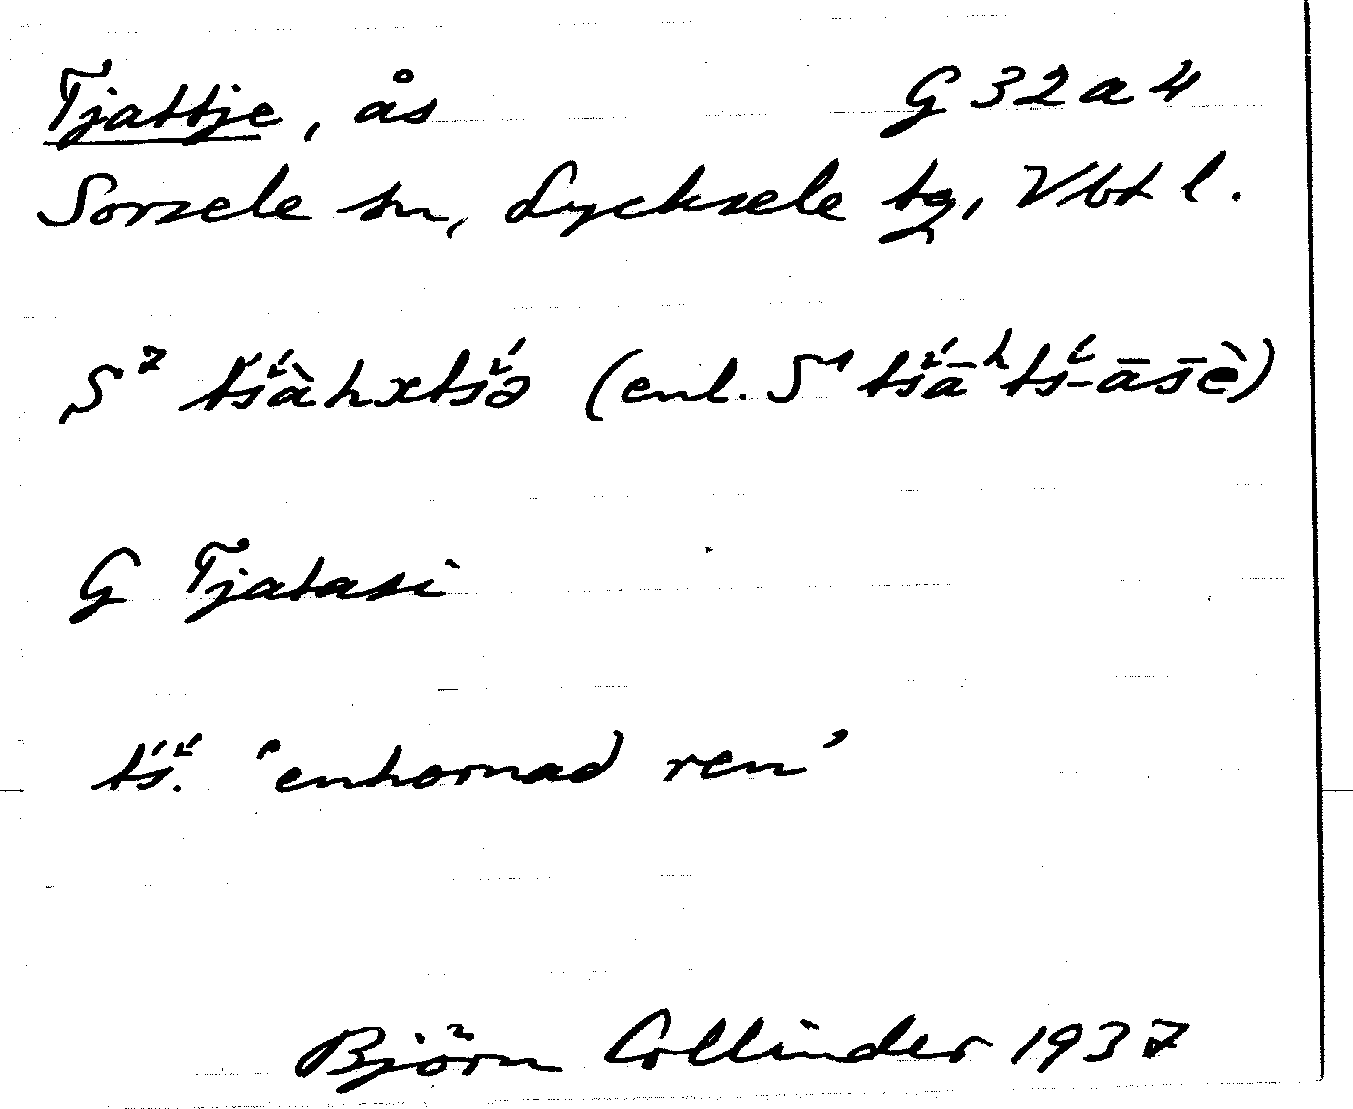 Tjattje, ås G 32 a 4
Sorsele sn, Lycksele tg, Vbtl.
S² tś̌àhxtś̌ə (enl. S¹ tś̌āʰtś̌-āsḕ)
G Tjatasi
tś̌. 'enhornad ren'
Björn Collinder 1937